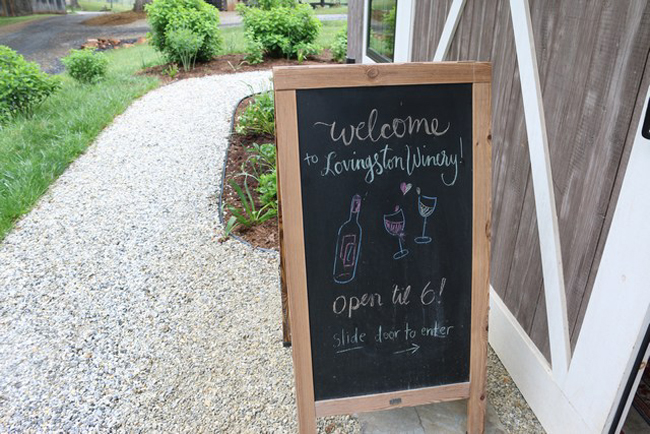 welcome
to Lovingston Winery!
open til 6!
slide door to enter